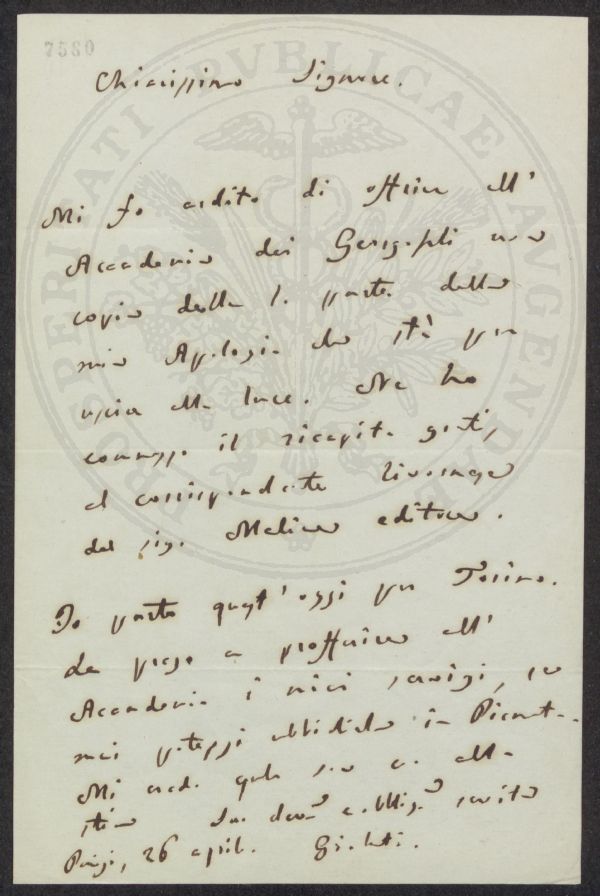 7580
PROSPERITATI PVBLICAE AVGENDAE
Chiarissimo Signore.
Mi fo ardito di offrire all'
Accademia dei Georgofili una
copia della 1a parte della
mia Apologia che sta per
uscire alla luce. Ne ho
commesso il ricapito gratis
al corrispondente livornese
del sig. Meline editore.
Io parto quest'oggi per Torino.
La prego a profferire all'
Accademia i miei servigi, se
mai potessi ubbidirla in Piemonte.
Mi creda quale sono con alta
stima Suo devmo obbligmo servitore
Parigi, 26 aprile. Gioberti.